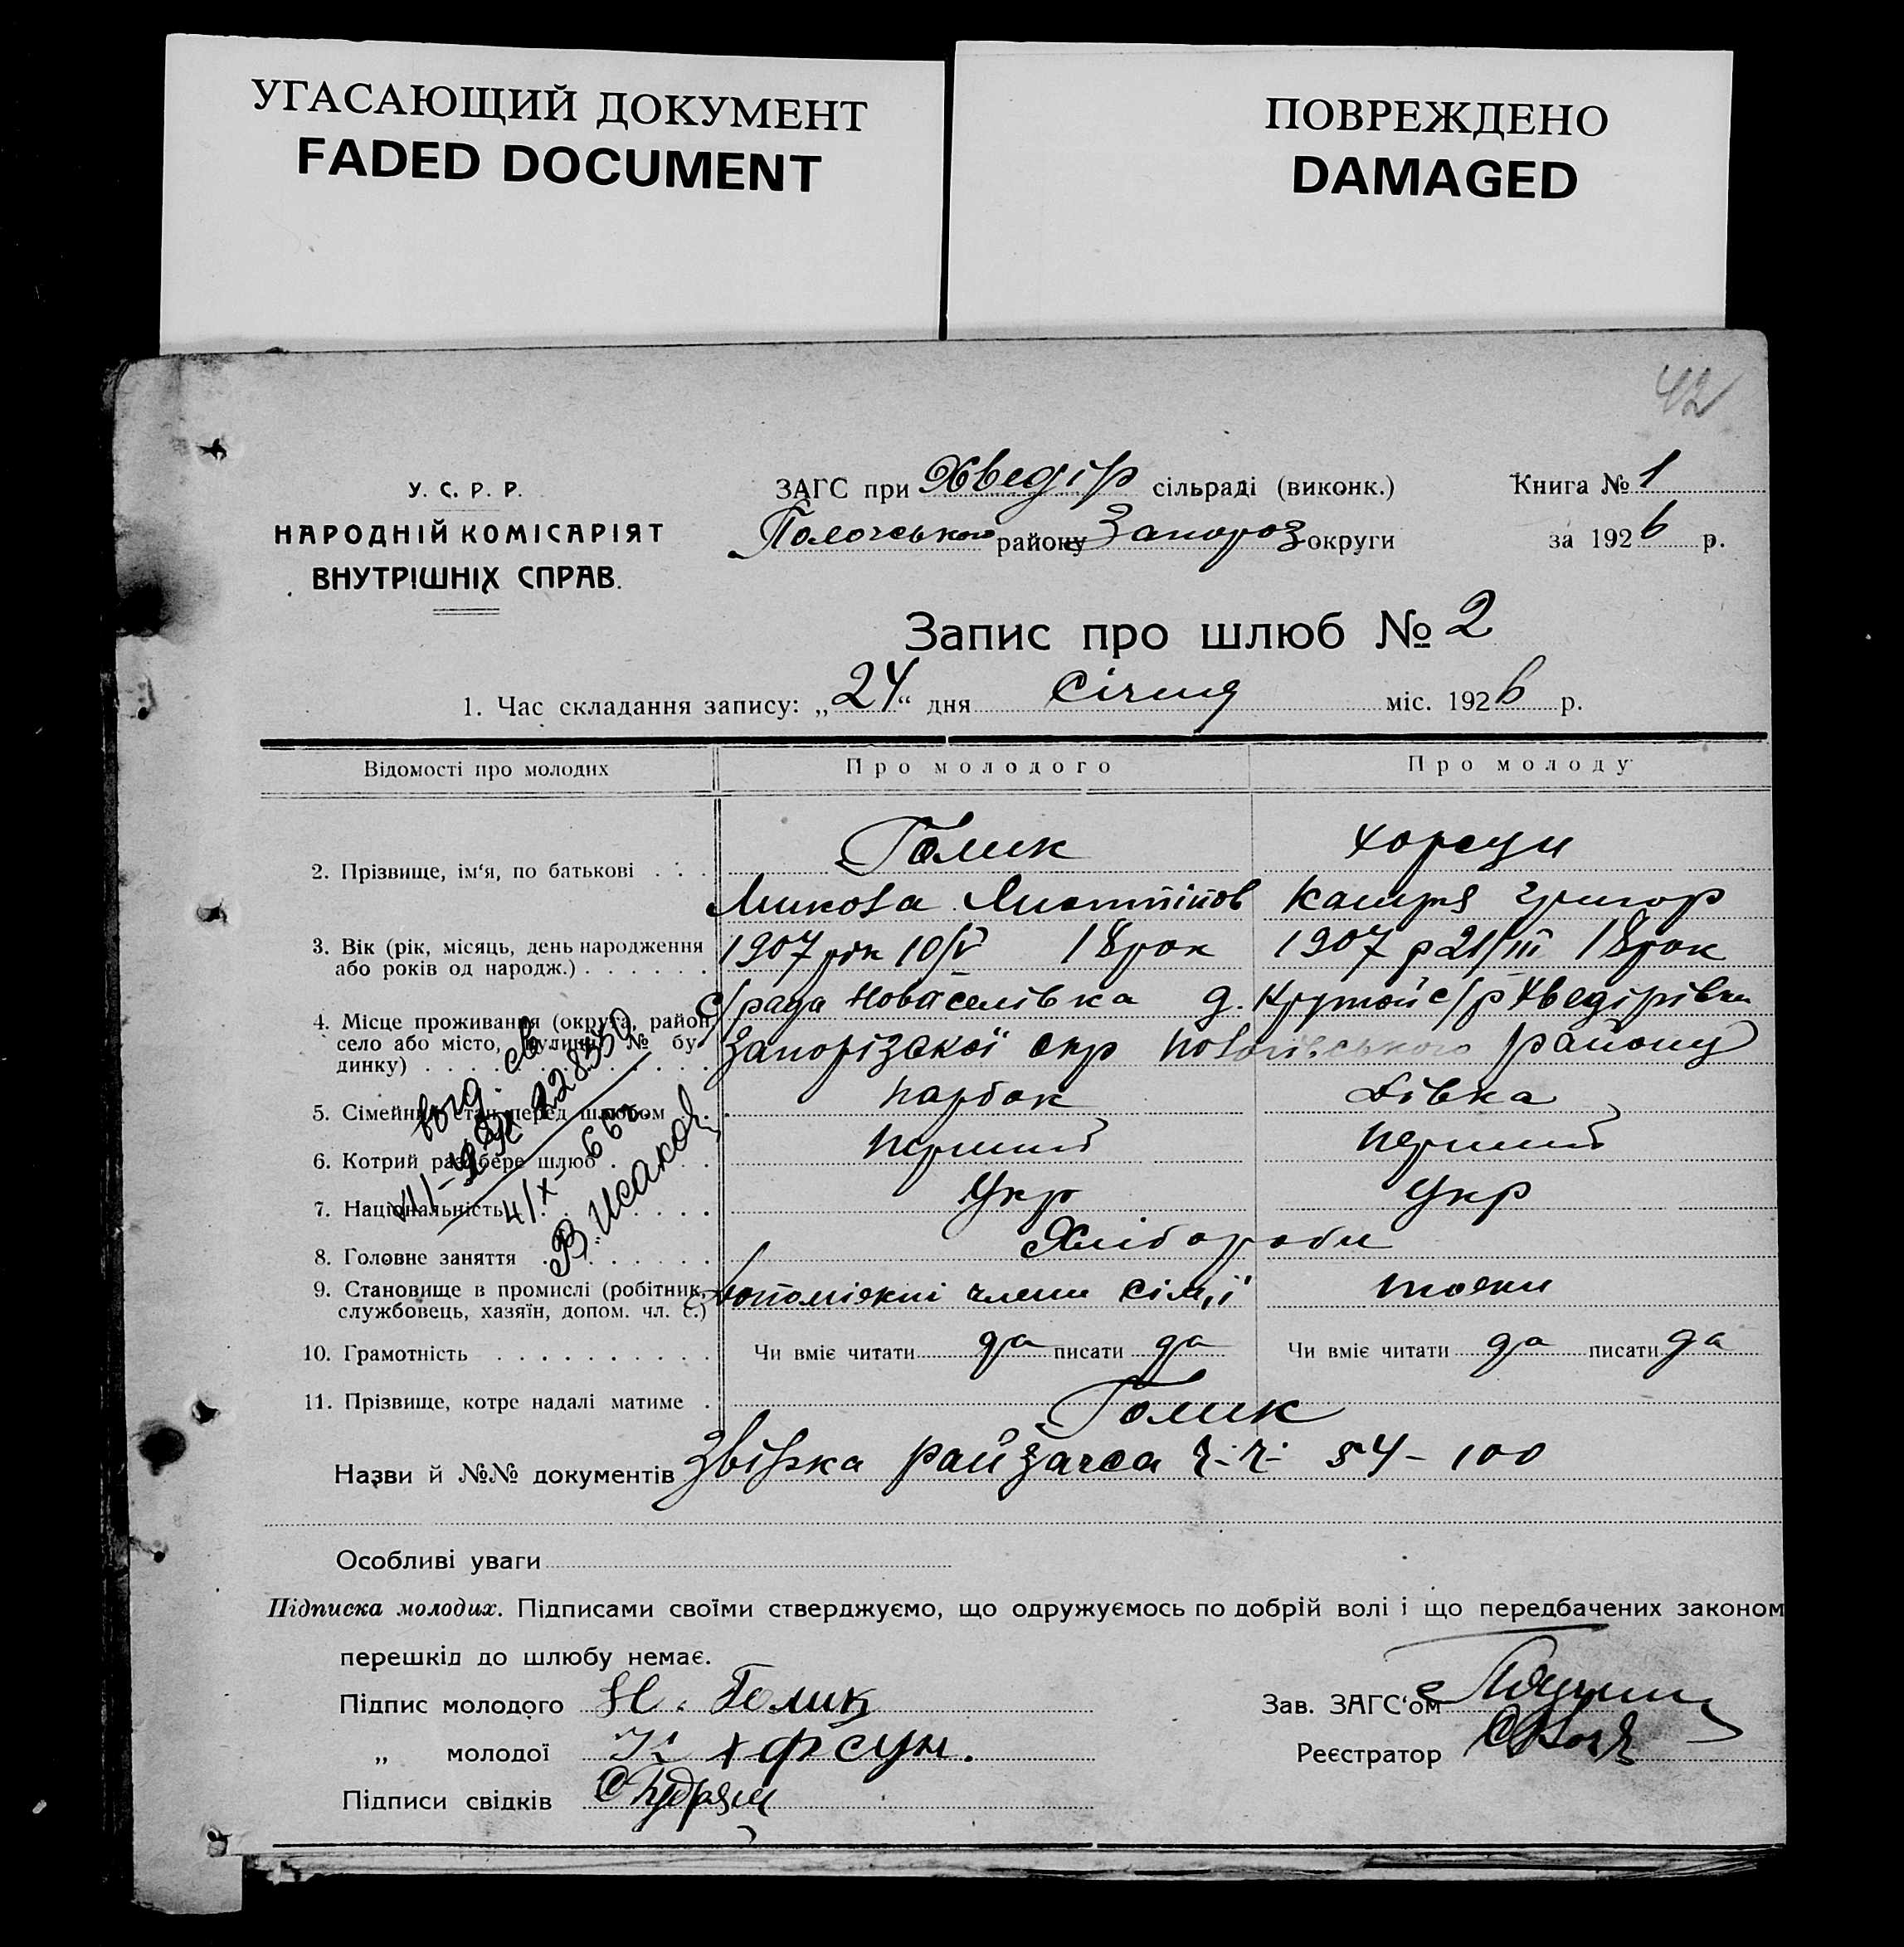 УГАСАЮЩИЙ ДОКУМЕНТ
FADED DOCUMENT
ПОВРЕЖДЕНО
DAMAGED
42
У. С. Р. Р.
НАРОДНІЙ КОМІСАРІЯТ
ВНУТРІШНІХ СПРАВ.
ЗАГС при Хведір сільраді (виконк.)
району Запороз округи
Книга № 1
за 1926 р.
Запис про шлюб № 2
1. Час складання запису: „24“ дня Січня міс. 1926 р.
Відомості про молодих Про молодого Про молоду
2. Прізвище, ім‘я, по батькові . . . Голик Хорсун
Микола Катря Григор
3. Вік (рік, місяць, день народження 1907 рік 10/V 18 рок 1907 р 21/III 18 рок
або років од народж.) . . . . . .
4. Місце проживання (округа, район, с/рада Новоселівка д. Крутой с/р Хведірівки
село або місто, вулиця, № бу- Запорізької окр району
динку) . . . . . . . . . . . . .
5. Сімейний стан перед шлюбом . . парбок Дівка
6. Котрий раз бере шлюб . . . . . перший перший
7. Національність . . . . . . . . Укр Укр
8. Головне заняття . . . . . . . Хлібороби
9. Становище в промислі (робітник, допоміжні члени сім,ї
службовець, хазяїн, допом. чл. с.)
10. Грамотність . . . . . . . . . . Чи вміє читати да писати да Чи вміє читати да писати да
11. Прізвище, котре надалі матиме . Голик
выд. св.
228350
4/X-66г.
В. Исакова
Назви й №№ документів Звірка райзагса ч.ч. 54-100
Особливі уваги
Підписка молодих. Підписами своїми стверджуємо, що одружуємось по добрій волі і що передбачених законом
перешкід до шлюбу немає.
Підпис молодого Н. Голик
„ молодої К Хорсун.
Підписи свідків
Зав. ЗАГС‘ом
Реєстратор